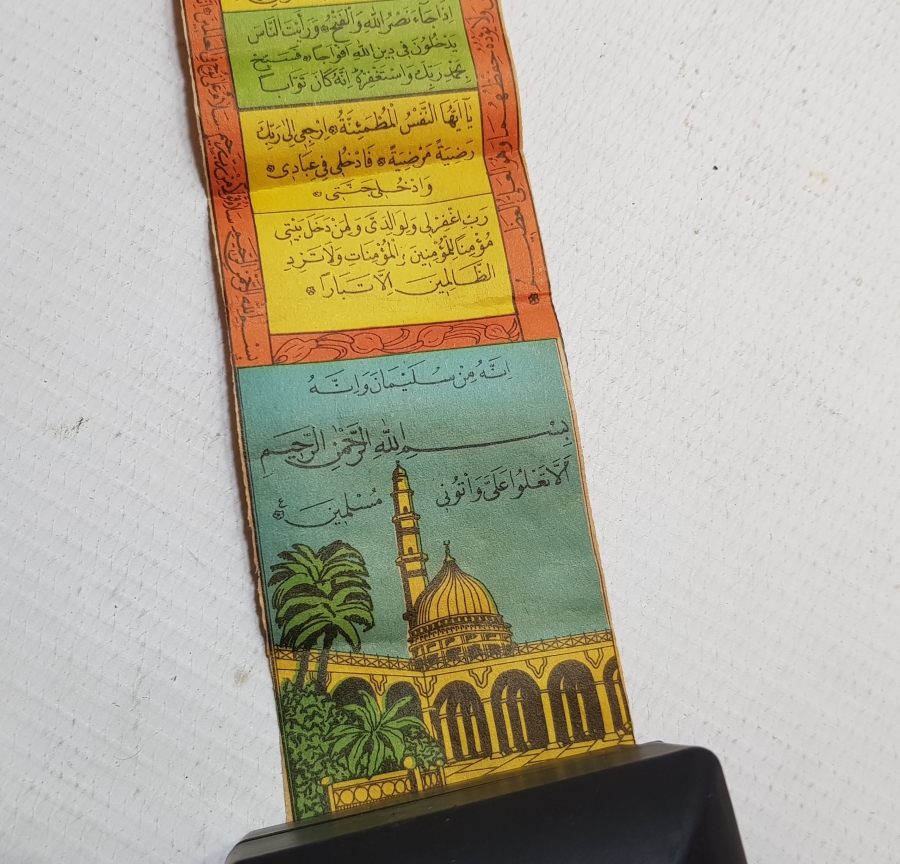 إذا جاء نصر الله والفتح ورأيت الناس
يدخلون في دين الله أفواجا فسبح
بحمد ربك واستغفره إنه كان توابا
يا أيتها النفس المطمئنة ارجعي إلى ربك
رضية مرضية فادخلي في عبادي
وادخلي جنتي
رب اغفر لي ولوالدي ولمن دخل بيتي
مؤمنا للمؤمنين والمؤمنات ولا تزد
الظالمين إلا تبارا
إنه من سليمان وإنه
بسم الله الرحمن الرحيم
ألا تغلوا علي وأتوني
مسلمين
ولا يؤده حفظهما وهو العلي العظيم
بسم الله الرحمن الرحيم